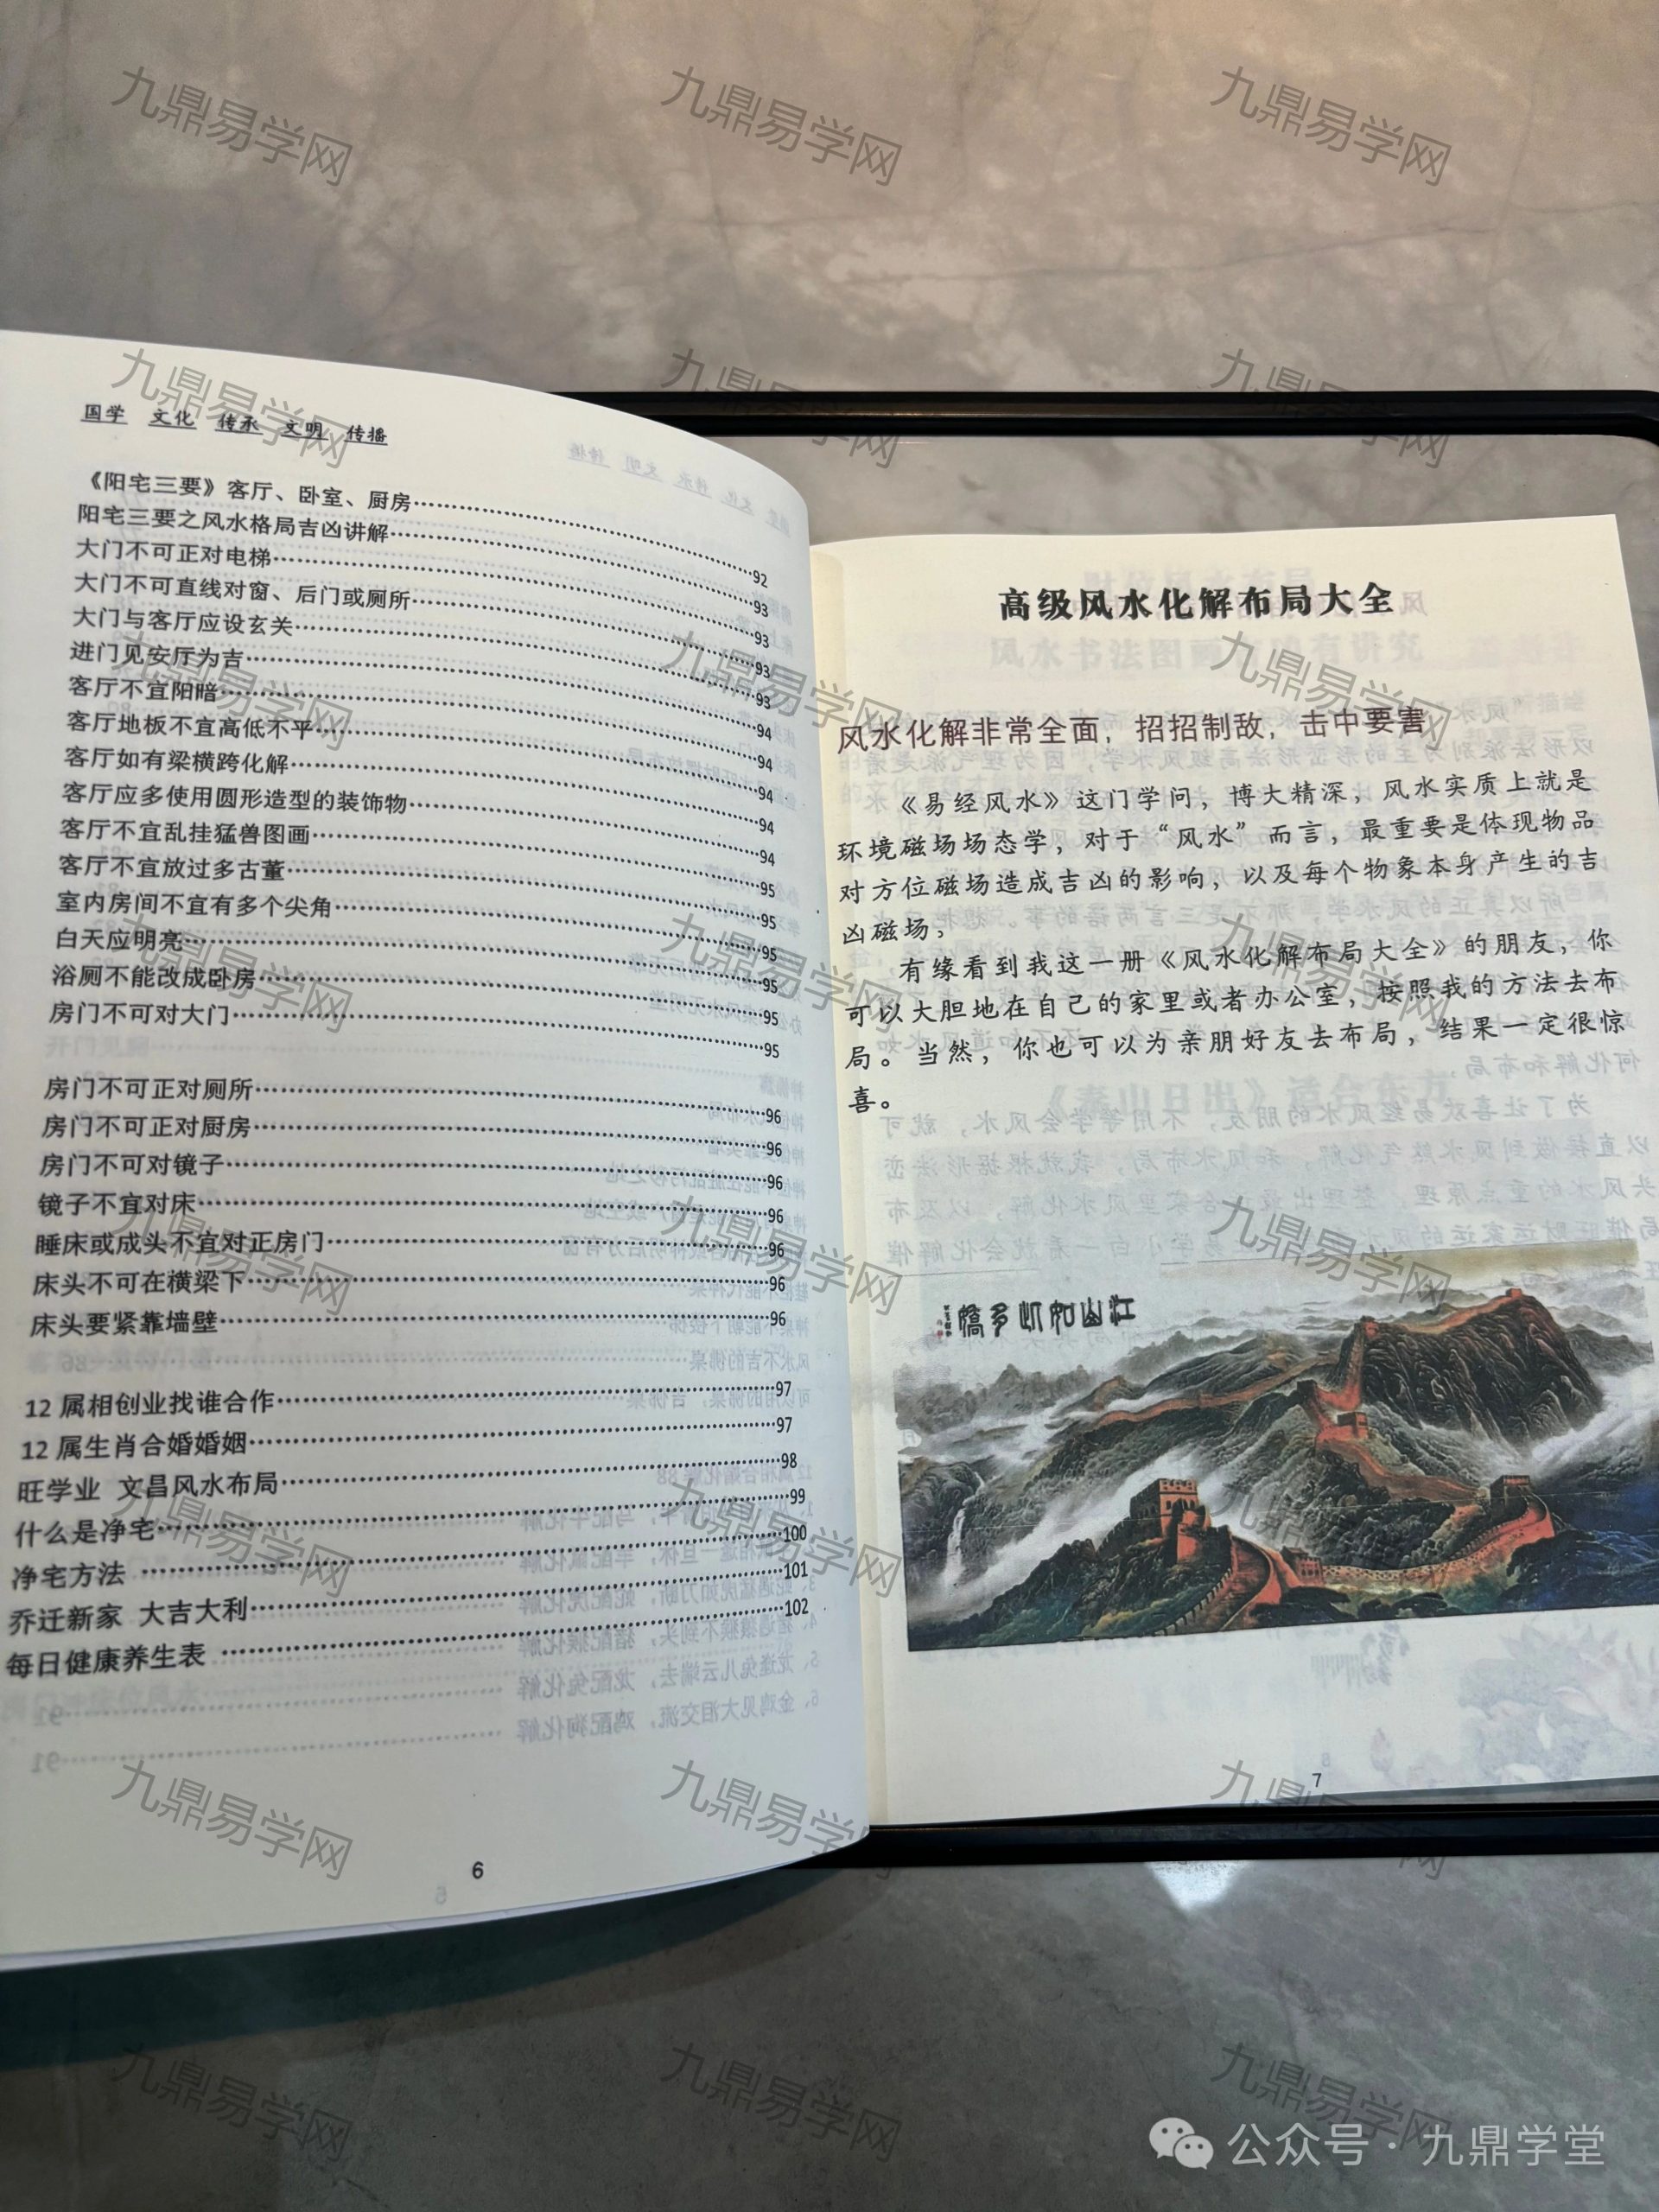 国学 文化 传承 文明 传播
《阳宅三要》客厅、卧室、厨房……92
阳宅三要之风水格局吉凶讲解……93
大门不可正对电梯……93
大门不可直线对窗、后门或厕所……93
大门与客厅应设玄关……93
进门见安厅为吉……94
客厅不宜阳暗……94
客厅地板不宜高低不平……94
客厅如有梁横跨化解……94
客厅应多使用圆形造型的装饰物……94
客厅不宜乱挂猛兽图画……95
客厅不宜放过多古董……95
室内房间不宜有多个尖角……95
白天应明亮……95
浴厕不能改成卧房……95
房门不可对大门……95
房门不可正对厕所……96
房门不可正对厨房……96
房门不可对镜子……96
镜子不宜对床……96
睡床或成头不宜对正房门……96
床头不可在横梁下……96
床头要紧靠墙壁……96
12 属相创业找谁合作……97
12 属生肖合婚婚姻……97
旺学业 文昌风水布局……98
什么是净宅……99
净宅方法 ……100
乔迁新家 大吉大利……101
每日健康养生表 ……102
6
高级风水化解布局大全
风水化解非常全面，招招制敌，击中要害
《易经风水》这门学问，博大精深，风水实质上就是
环境磁场场态学，对于“风水”而言，最重要是体现物品
对方位磁场造成吉凶的影响，以及每个物象本身产生的吉
凶磁场；
有缘看到我这一册《风水化解布局大全》的朋友，你
可以大胆地在自己的家里或者办公室，按照我的方法去布
局。当然，你也可以为亲朋好友去布局，结果一定很惊
喜。
江山如此多娇
7
九鼎易学网
公众号·九鼎学堂